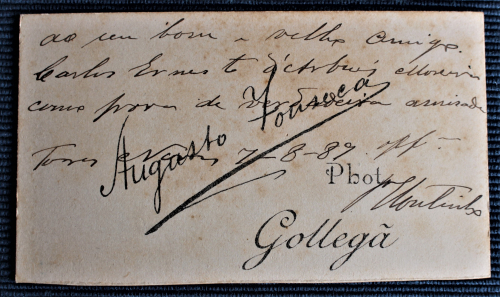 ao seu bom e velho amigo
Carlos Ernesto d'Arbués Moreira
como prova de verdadeira amisade
Augusto Fonseca
Torres 7-8-89
Phot
Gollegã